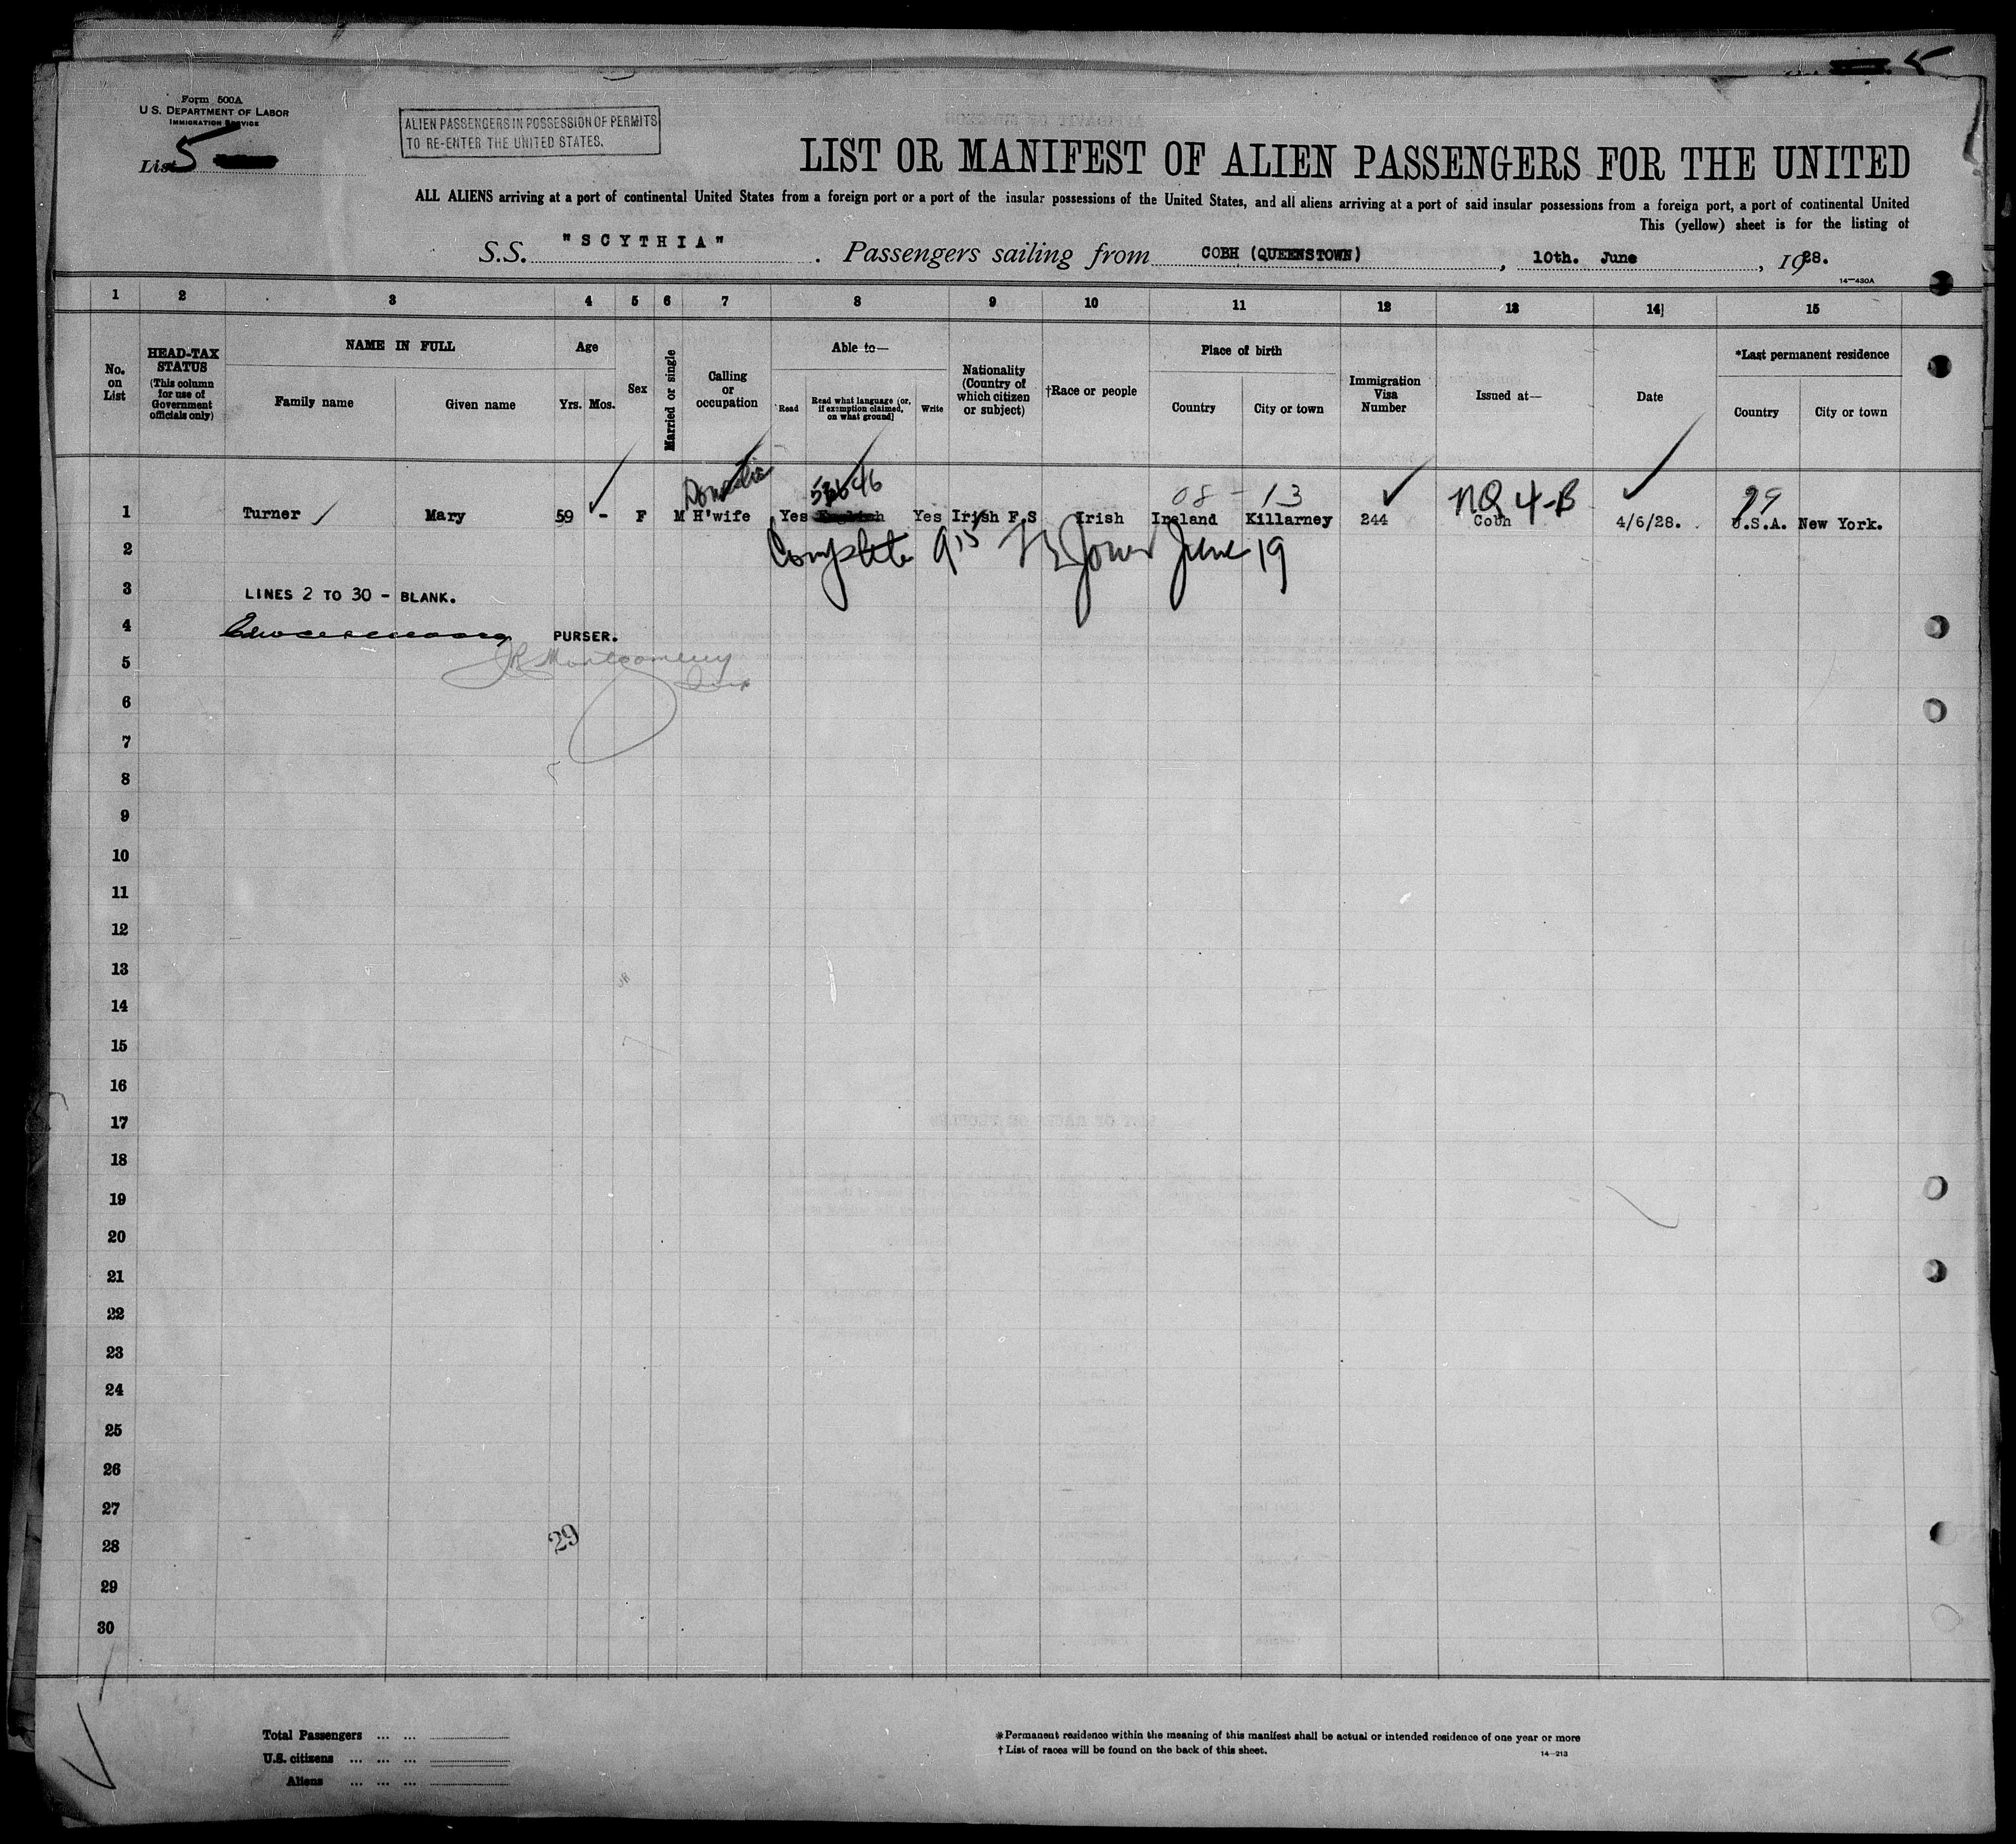 5
Form 500A
U. S. DEPARTMENT OF LABOR
IMMIGRATION SERVICE
List 5
ALIEN PASSENGERS IN POSSESSION OF PERMITS
TO RE-ENTER THE UNITED STATES.
LIST OR MANIFEST OF ALIEN PASSENGERS FOR THE UNITED
ALL ALIENS arriving at a port of continental United States from a foreign port or a port of the insular possessions of the United States, and all aliens arriving at a port of said insular possessions from a foreign port, a port of continental United
This (yellow) sheet is for the listing of
S.S. "SCYTHIA". Passengers sailing from COBH (QUEENSTOWN), 10th. June, 1928.
14—430A
1 2 3 4 5 6 7 8 9 10 11 12 13 14 15
No. on List
HEAD-TAX STATUS (This column for use of Government officials only)
NAME IN FULL
Family name Given name
Age
Yrs. Mos.
Sex
Married or single
Calling or occupation
Able to—
Read Read what language [or, if exemption claimed, on what ground] Write
Nationality (Country of which citizen or subject)
†Race or people
Place of birth
Country City or town
Immigration Visa Number
Issued at—
Date
*Last permanent residence
Country City or town
Domestic 08 - 13 NQ 4-B 99
1 Turner Mary 59 - F M H'wife Yes English Yes Irish F.S Irish Ireland Killarney 244 Cobh 4/6/28. U.S.A. New York.
2 Complete 915 Jones June 19
3 LINES 2 TO 30 - BLANK.
4 PURSER.
5 JR Montgomery
6
7
8
9
10
11
12
13
14
15
16
17
18
19
20
21
22
23
24
25
26
27
28 29
29
30
Total Passengers ... ...
U.S. citizens ... ... ...
Aliens ... ... ...
*Permanent residence within the meaning of this manifest shall be actual or intended residence of one year or more
† List of races will be found on the back of this sheet.
14—213